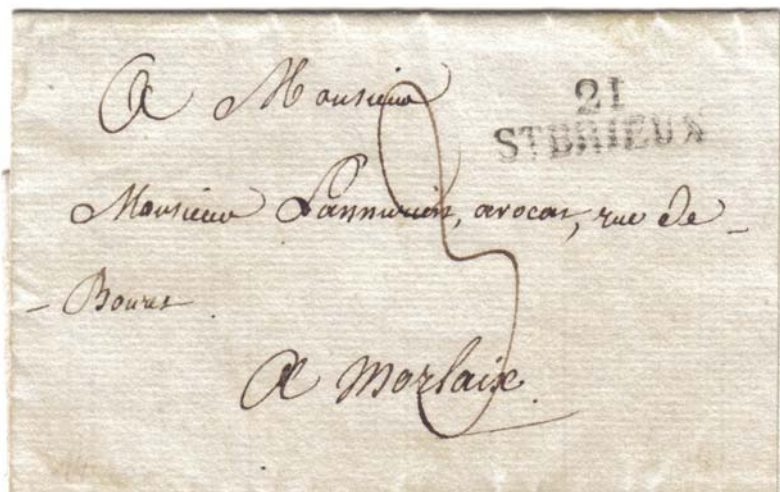 A Monsieur
21
STBRIEUX
Monsieur Lannurien, avocat, rue de -
- Bouret
A Morlaix.